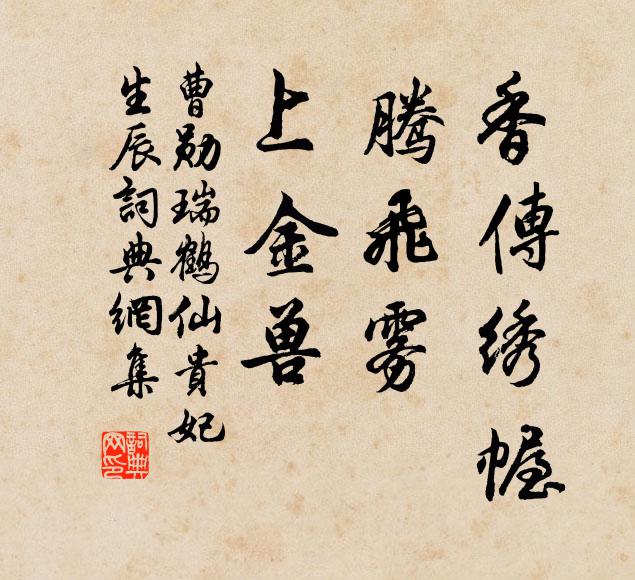 香傳绣幄
腾飛雾
上金兽
曹勋瑞鶴仙貴妃
生辰詞典網集
詞典
网印